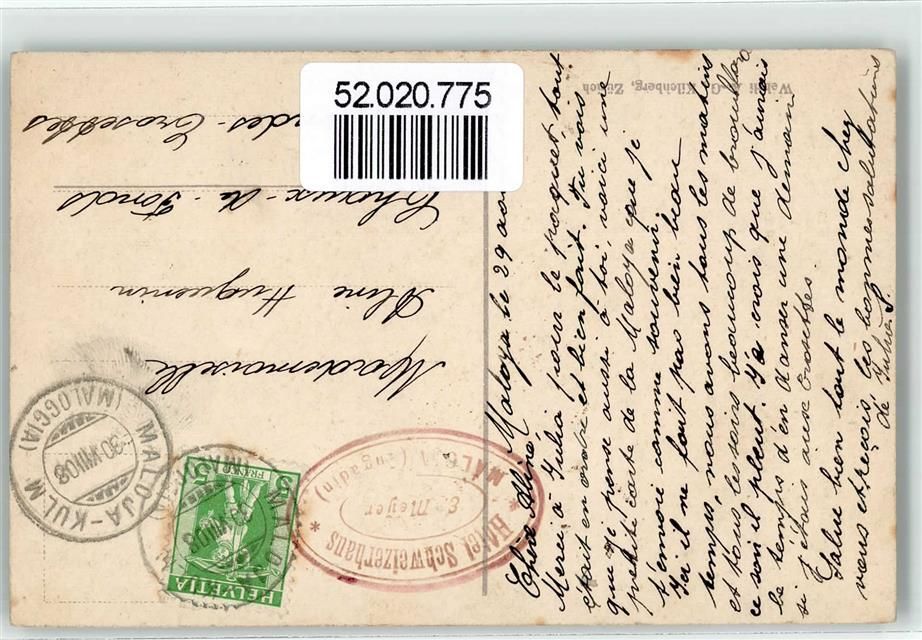 52.020.775
Wehrli A.-G., Kilchberg, Zürich
Mademoiselle
Aline Huguenin
Chaux-de-Fonds
Crosettes
HELVETIA
5
FRANCO
MALOJA-KULM
(MALOGGIA)
30.VIII.08
Hôtel Schweizerhaus
E. Meyer
MALOJA (Engadin)
Maloya le 29
Chère Aline
Merci à Julia pour le paquet tout
était en ordre et bien fait. Tu vois
que je pense aussi à toi, voici une
petite carte de la Maloya que je
t'envoie comme souvenir.
Ici il ne fait pas bien beau
temps, nous avons tous les matins
et tous les soirs beaucoup de brouillard
ce soir il pleut. Je crois que j'aurais
le temps d'en danser une demain
si j'étais aux Crosettes
Salue bien tout le monde chez
vous et reçois les bonnes salutations
de